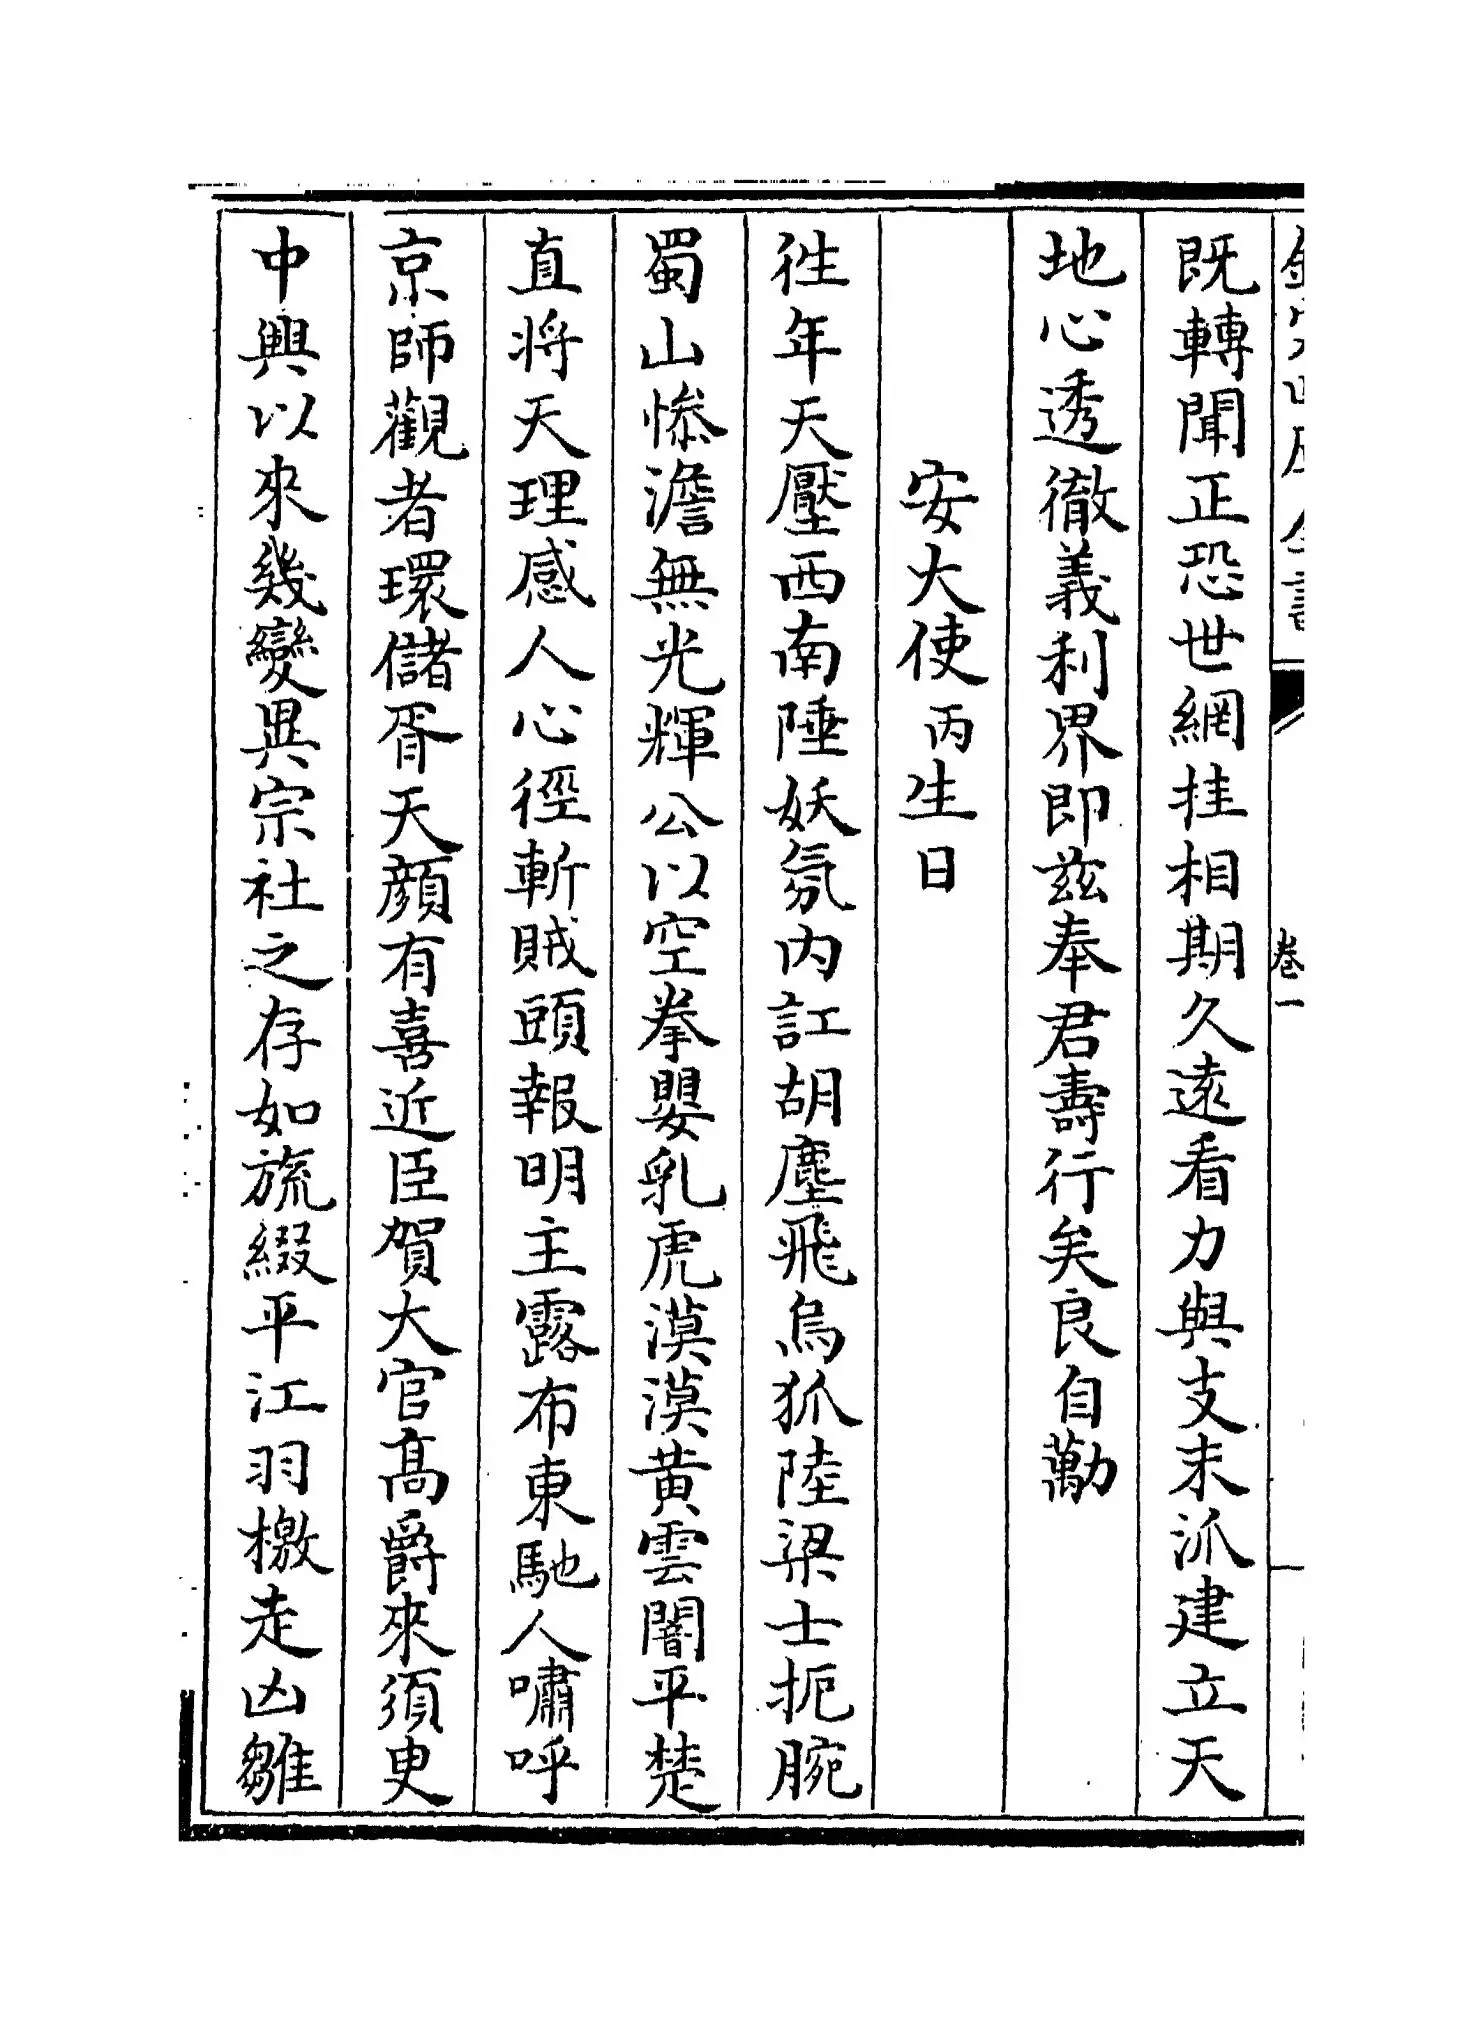 欽定四庫全書
卷一
既轉聞正恐世網挂相期久逺看力與支末派建立天
地心透徹義利界即兹奉君壽行矣良自勱
安大使丙生日
徃年天壓西南陲妖氛内訌胡塵飛烏狐陸梁士扼腕
蜀山惨澹無光輝公以空拳嬰乳虎漠漠黄雲闇平楚
直将天理感人心徑斬賊頭報明主露布東馳人嘯呼
京師觀者環儲胥天顔有喜近臣賀大官髙爵來須臾
中興以來幾變異宗社之存如旒綴平江羽檄走凶雛